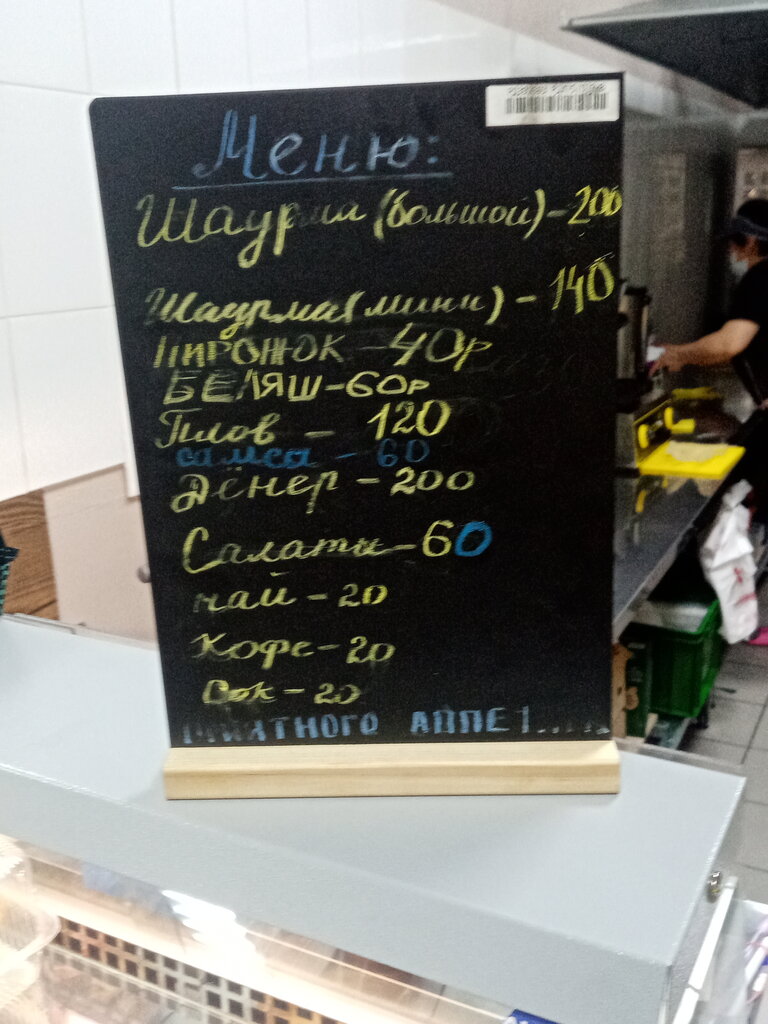 Меню:
Шаурма (большой) - 200
Шаурма (мини) - 140
ПИРОЖОК - 40р
БЕЛЯШ - 60р
Плов - 120
самса - 60
Дёнер - 200
Салаты - 60
чай - 20
Кофе - 20
Сок - 20
ПРИЯТНОГО